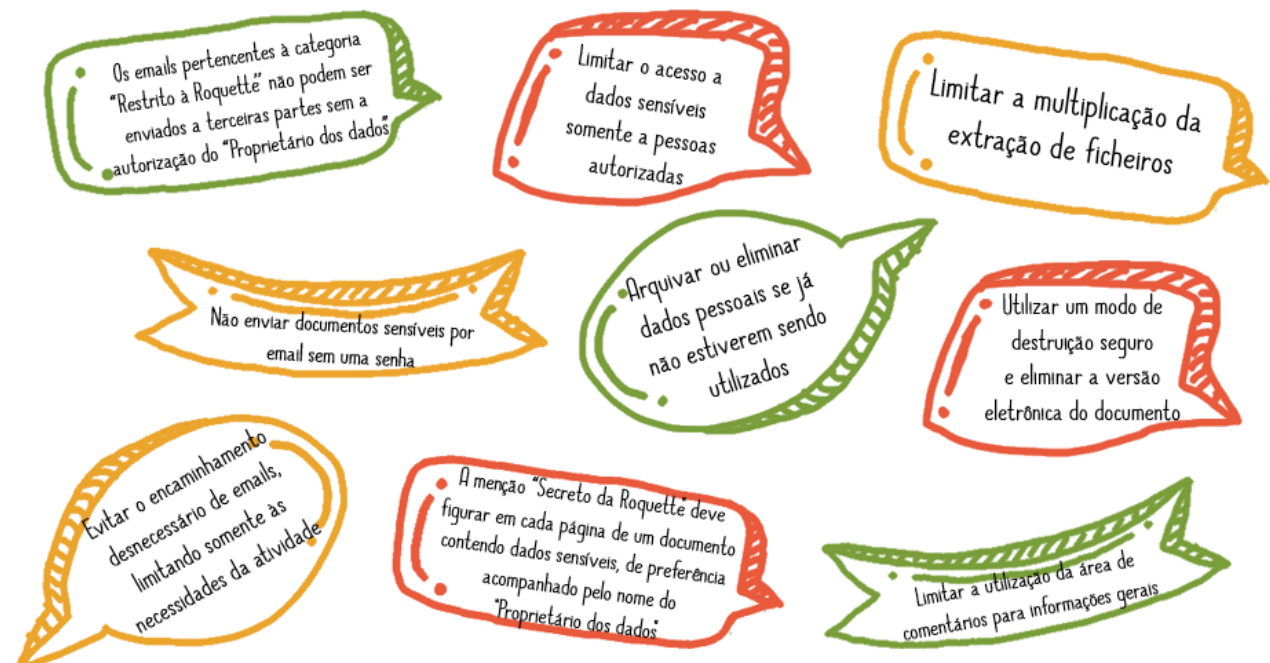 Os emails pertencentes à categoria
"Restrito à Roquette" não podem ser
enviados a terceiras partes sem a
autorização do "Proprietário dos dados"
Limitar o acesso a
dados sensíveis
somente a pessoas
autorizadas
Limitar a multiplicação da
extração de ficheiros
Não enviar documentos sensíveis por
email sem uma senha
Arquivar ou eliminar
dados pessoais se já
não estiverem sendo
utilizados
Utilizar um modo de
destruição seguro
e eliminar a versão
eletrônica do documento
Evitar o encaminhamento
desnecessário de emails,
limitando somente às
necessidades da atividade
A menção "Secreto da Roquette" deve
figurar em cada página de um documento
contendo dados sensíveis, de preferência
acompanhado pelo nome do
"Proprietário dos dados"
Limitar a utilização da área de
comentários para informações gerais